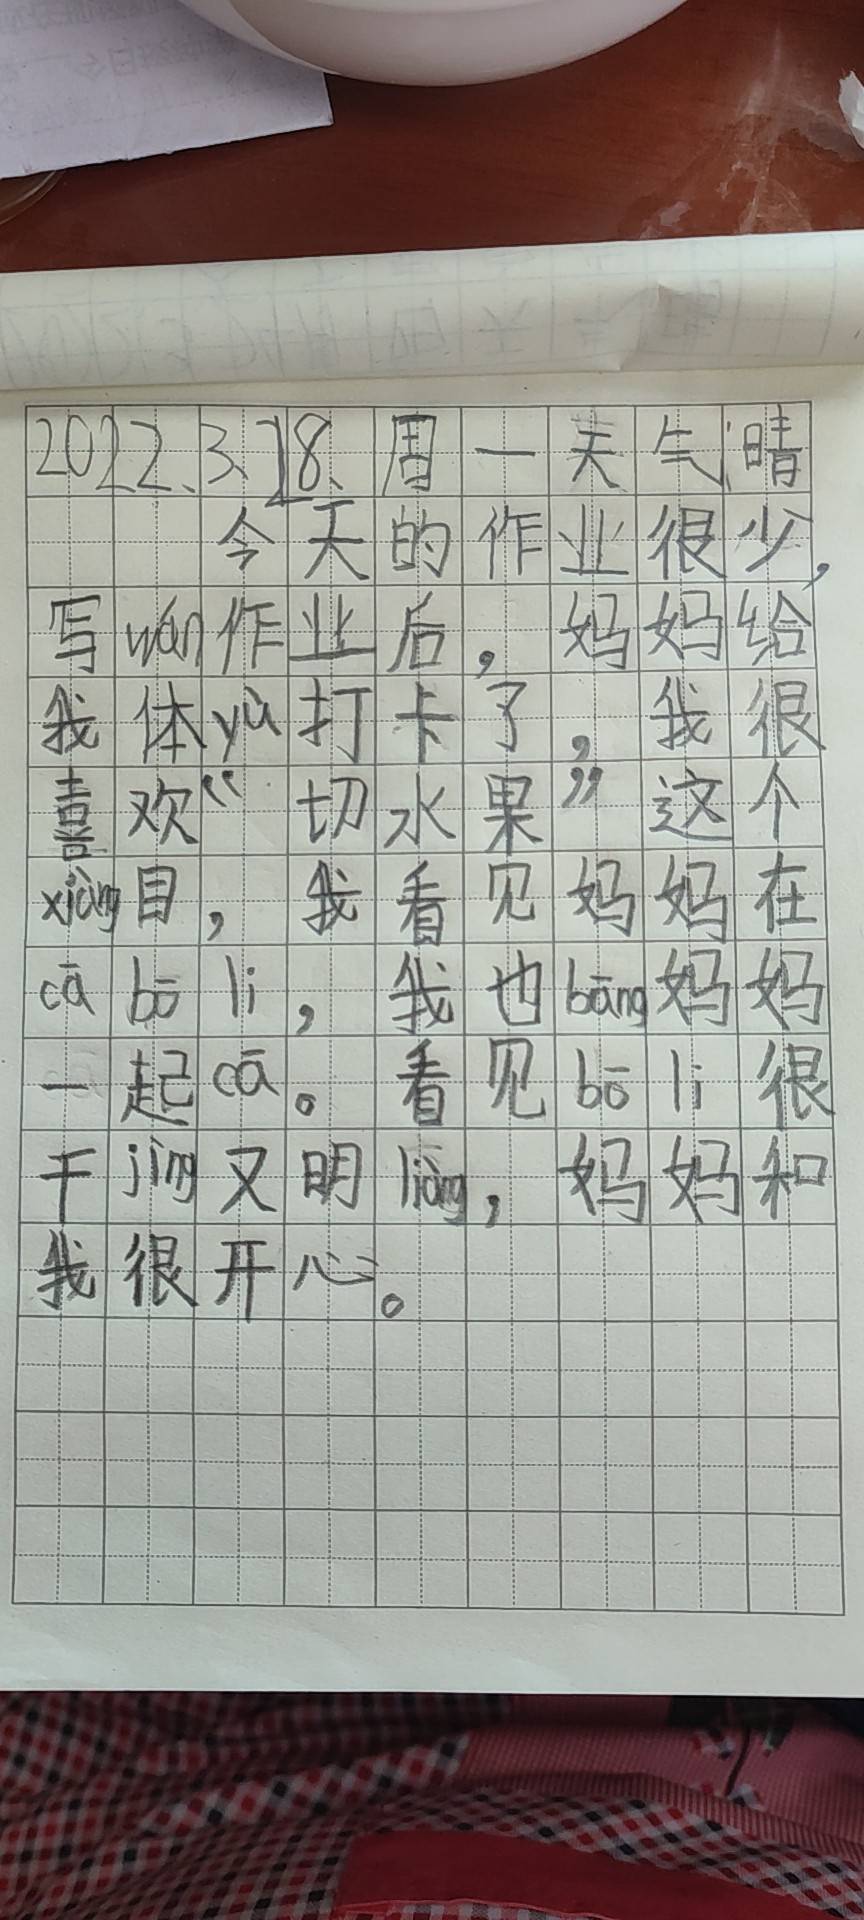 2022.3.28.周一天气晴
今天的作业很少,
写wán作业后,妈妈给
我体yù打卡了,我很
喜欢“切水果”这个
xiàng目,我看见妈妈在
cā bō li,我也bāng妈妈
一起cā。看见bō li很
干jìng又明liàng,妈妈和
我很开心。